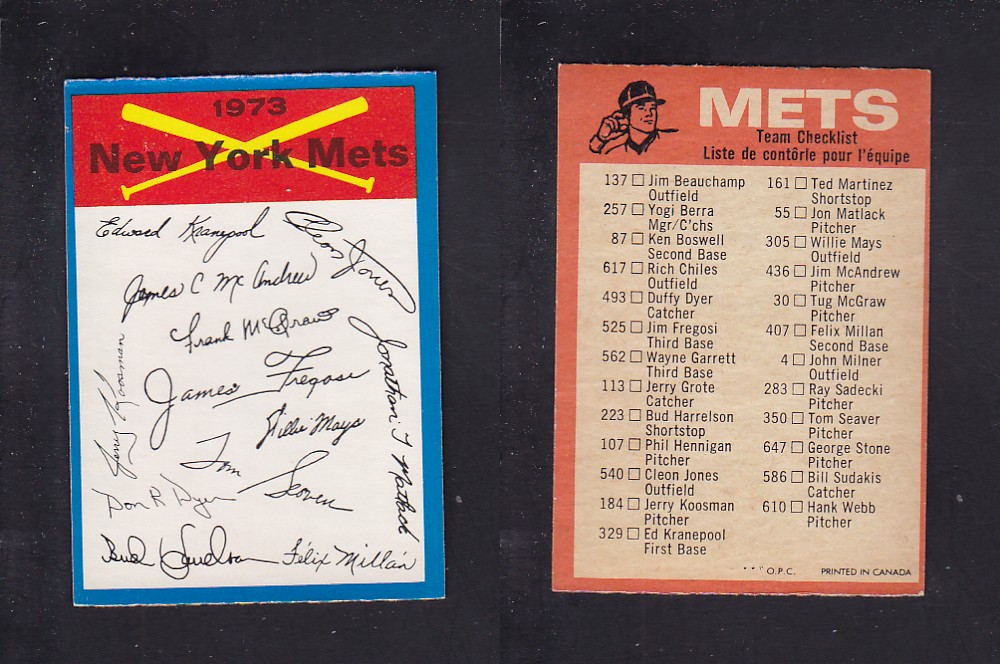 1973
New York Mets
Edward Kranepool
Cleon Jones
James C McAndrew
Frank McGraw
Jerry Koosman
James Fregosi
Jonathan T Matlack
Willie Mays
Tom Seaver
Don R Dyer
Bud Harrelson
Félix Millán
METS
Team Checklist
Liste de contôrle pour l'équipe
137 □ Jim Beauchamp
Outfield
257 □ Yogi Berra
Mgr/C'chs
87 □ Ken Boswell
Second Base
617 □ Rich Chiles
Outfield
493 □ Duffy Dyer
Catcher
525 □ Jim Fregosi
Third Base
562 □ Wayne Garrett
Third Base
113 □ Jerry Grote
Catcher
223 □ Bud Harrelson
Shortstop
107 □ Phil Hennigan
Pitcher
540 □ Cleon Jones
Outfield
184 □ Jerry Koosman
Pitcher
329 □ Ed Kranepool
First Base
161 □ Ted Martinez
Shortstop
55 □ Jon Matlack
Pitcher
305 □ Willie Mays
Outfield
436 □ Jim McAndrew
Pitcher
30 □ Tug McGraw
Pitcher
407 □ Felix Millan
Second Base
4 □ John Milner
Outfield
283 □ Ray Sadecki
Pitcher
350 □ Tom Seaver
Pitcher
647 □ George Stone
Pitcher
586 □ Bill Sudakis
Catcher
610 □ Hank Webb
Pitcher
O.P.C. PRINTED IN CANADA